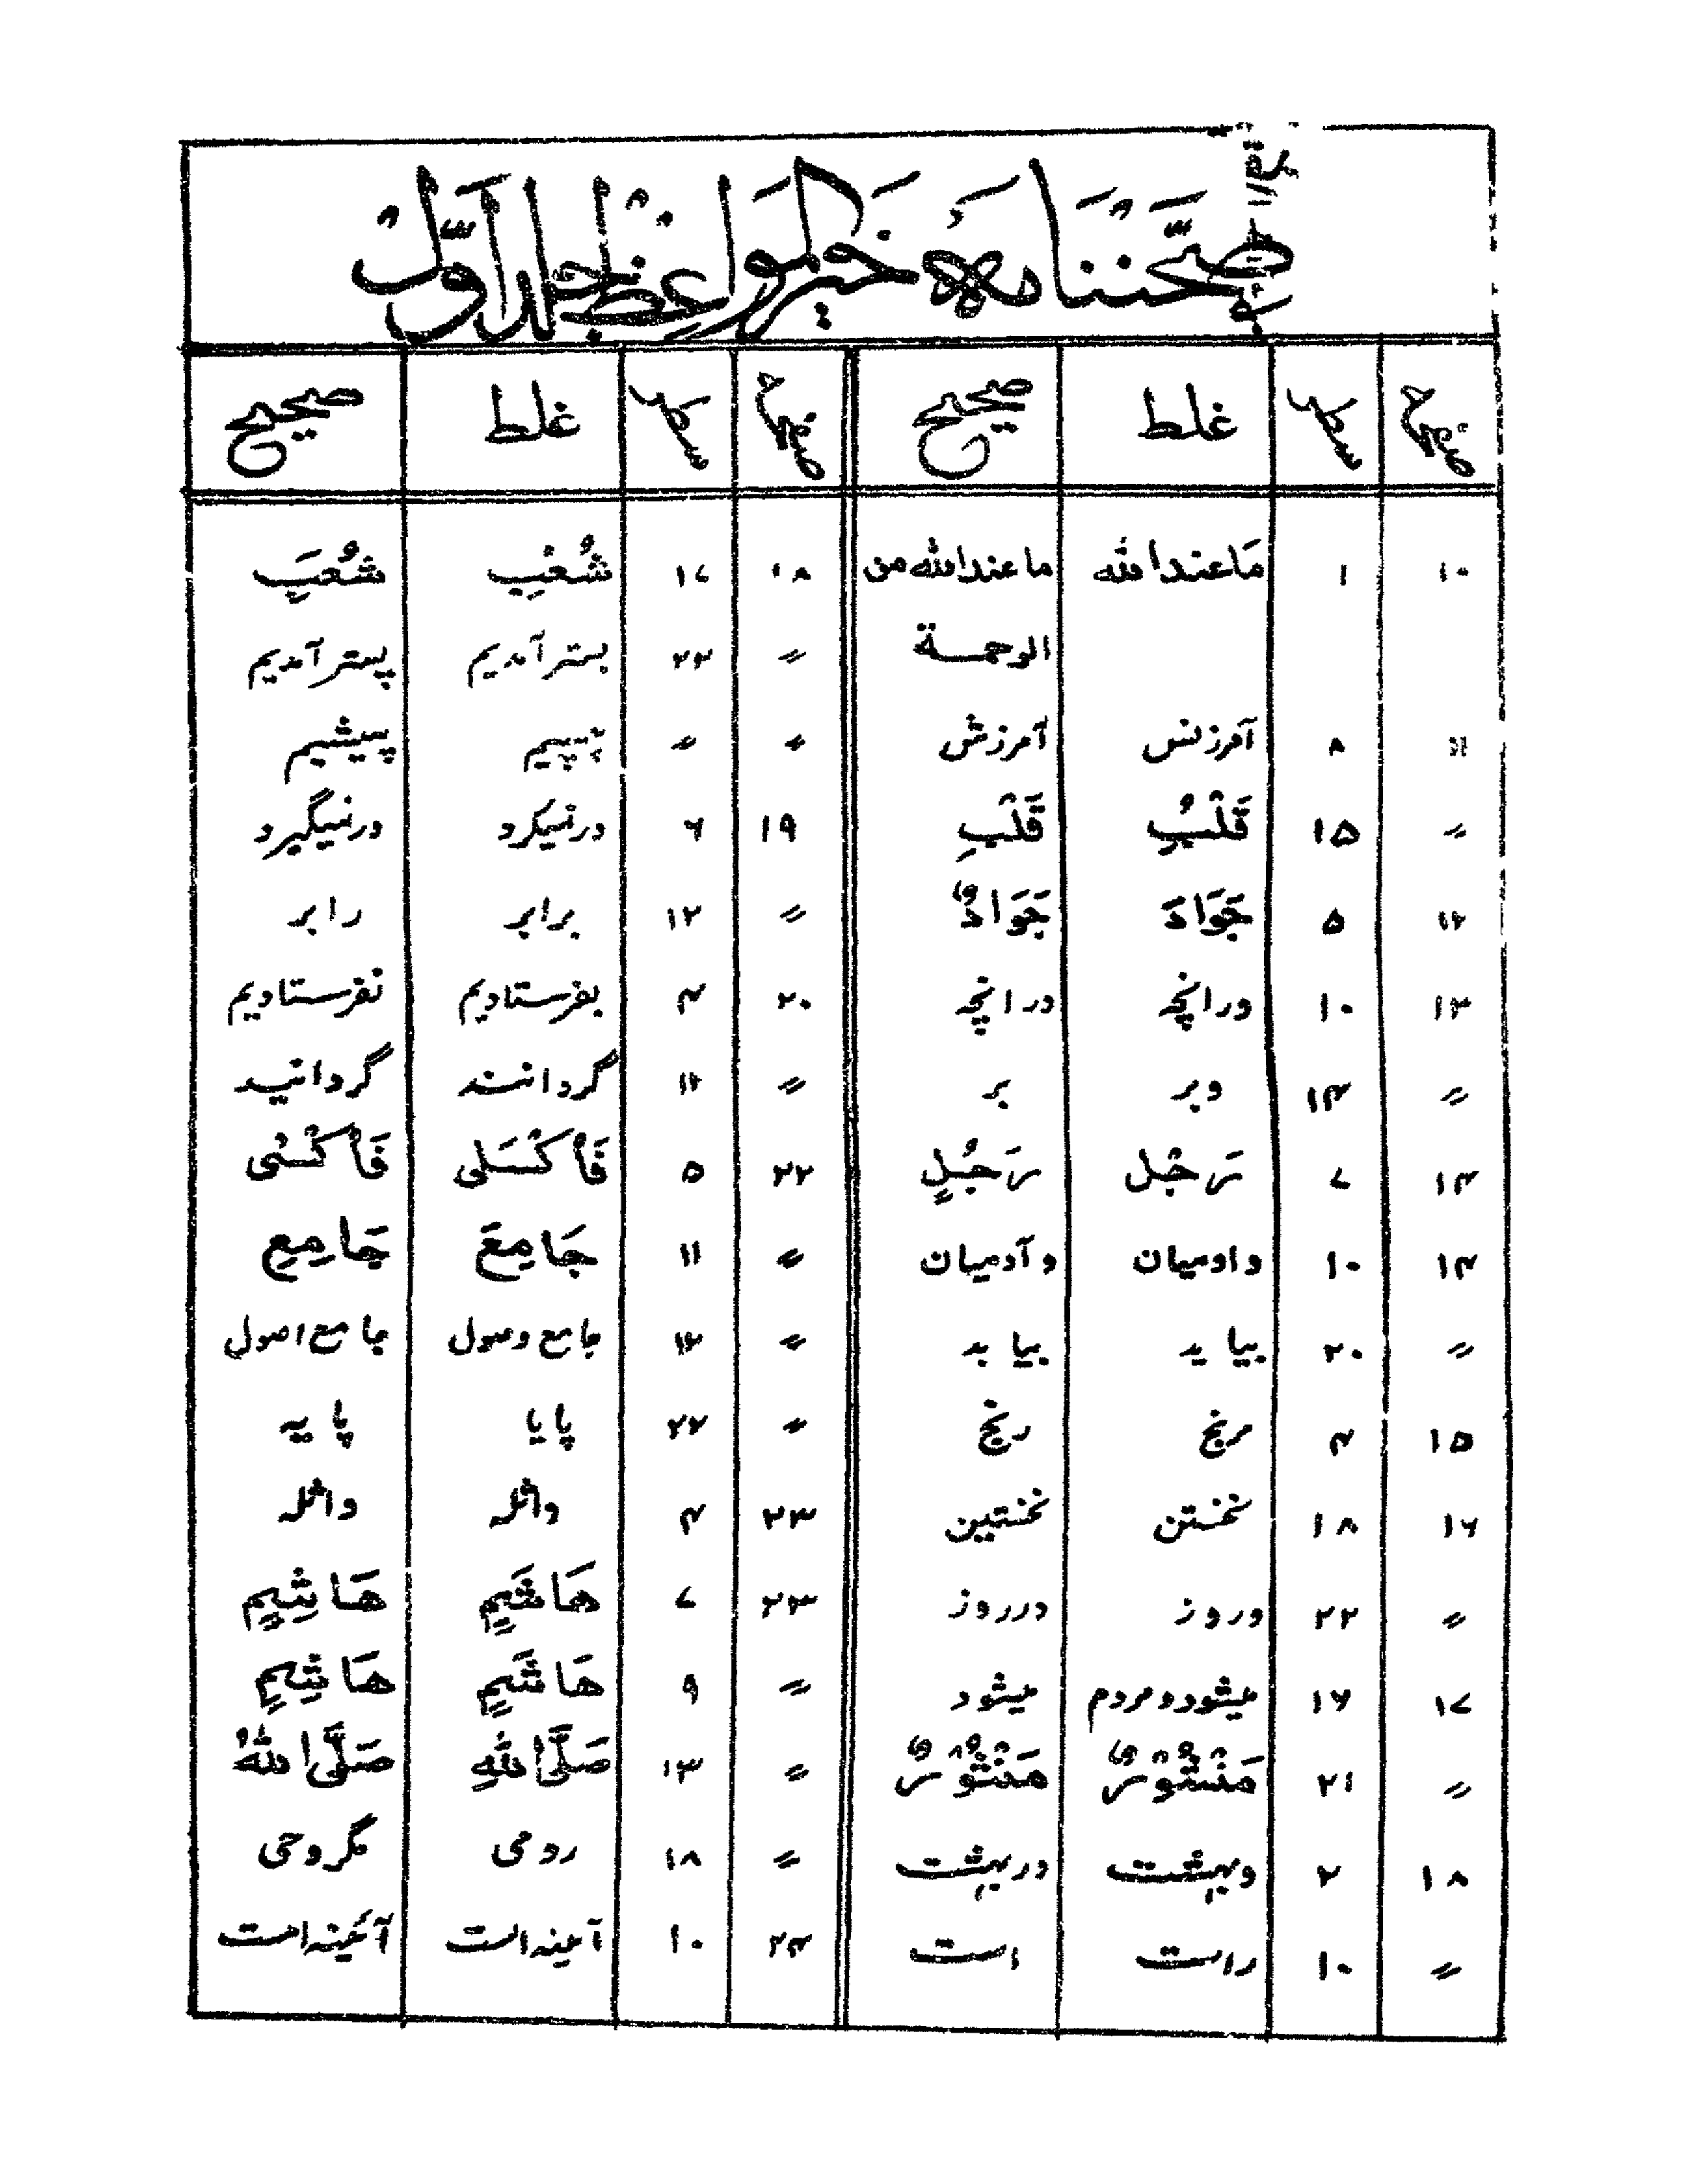 صحتنامه خیر المواعظ جلد اول
صفحه سطر غلط صحیح صفحه سطر غلط صحیح
۱۰ ۱ مَاعندالله ماعندالله من ۱۸ ۱۷ شُعْبِ شُعَبِ
الرحمة ״ ۲۲ بسترآمدیم پسترآمدیم
۱۱ ۸ آمرزنس آمرزش ״ ״ پیشیم
״ ۱۵ قَلْبٌ قَلْبِ ۱۹ ۶ درنیکرد درنمیگیرد
۱۲ ۵ جَوَادَ جَوَادٌ ״ ۱۲ برابر رابر
۱۳ ۱۰ ورانچه درانچه ۲۰ ۴ بفرستادیم نفرستادیم
״ ۱۴ وبر بر ״ ۱۲ گردانند گردانید
۱۴ ۷ رَجْل رَجُلٍ ۲۲ ۵ فَأْكْسَلی فَأْكْسُی
۱۴ ۱۰ واومیان وآدمیان ״ ۱۱ جَامِعَ جَامِعِ
״ ۲۰ بیاید بیابد ״ ۱۲ جامع وصول جامع اصول
۱۵ ۴ مرنج رنج ״ ۲۲ پایا پایه
۱۶ ۱۸ نخستن نخستین ۲۳ ۴ واثله واثله
״ ۲۲ وروز درروز ۲۳ ۷ هَاشَیمٍ هَاشِیمٍ
۱۷ ۱۶ میشودومردم میشود ״ ۹ هَاشَیمٍ هَاشِیمٍ
״ ۲۱ مَنْشُوْرٌ مَنْثُوْرٌ ״ ۱۳ صَلَّی اللهِ صَلَّی اللهُ
۱۸ ۲ وبهشت دربهشت ״ ۱۸ رومی مگروحی
״ ۱۰ راست است ۲۴ ۱۰ آعینه است آئینه است